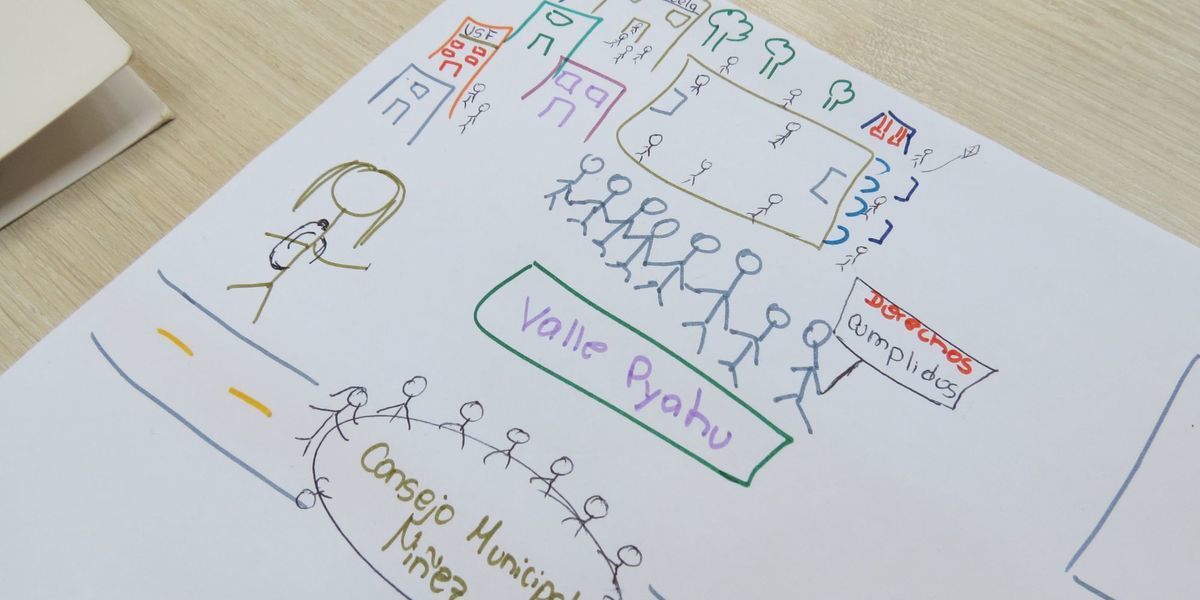 USF
Valle Pyahu
Derechos
cumplidos
Consejo Municipal
Niñez